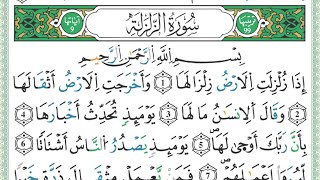 سُورَةُ الزَّلْزَلَةِ
بِسْمِ اللَّهِ الرَّحْمَٰنِ الرَّحِيمِ
إِذَا زُلْزِلَتِ الْأَرْضُ زِلْزَالَهَا ١ وَأَخْرَجَتِ الْأَرْضُ أَثْقَالَهَا
٢ وَقَالَ الْإِنسَٰنُ مَا لَهَا ٣ يَوْمَئِذٍ تُحَدِّثُ أَخْبَارَهَا ٤
بِأَنَّ رَبَّكَ أَوْحَىٰ لَهَا ٥ يَوْمَئِذٍ يَصْدُرُ النَّاسُ أَشْتَاتًا ٦
لِّيُرَوْا أَعْمَٰلَهُمْ ٧ فَمَن يَعْمَلْ مِثْقَالَ ذَرَّةٍ خَيْرًا